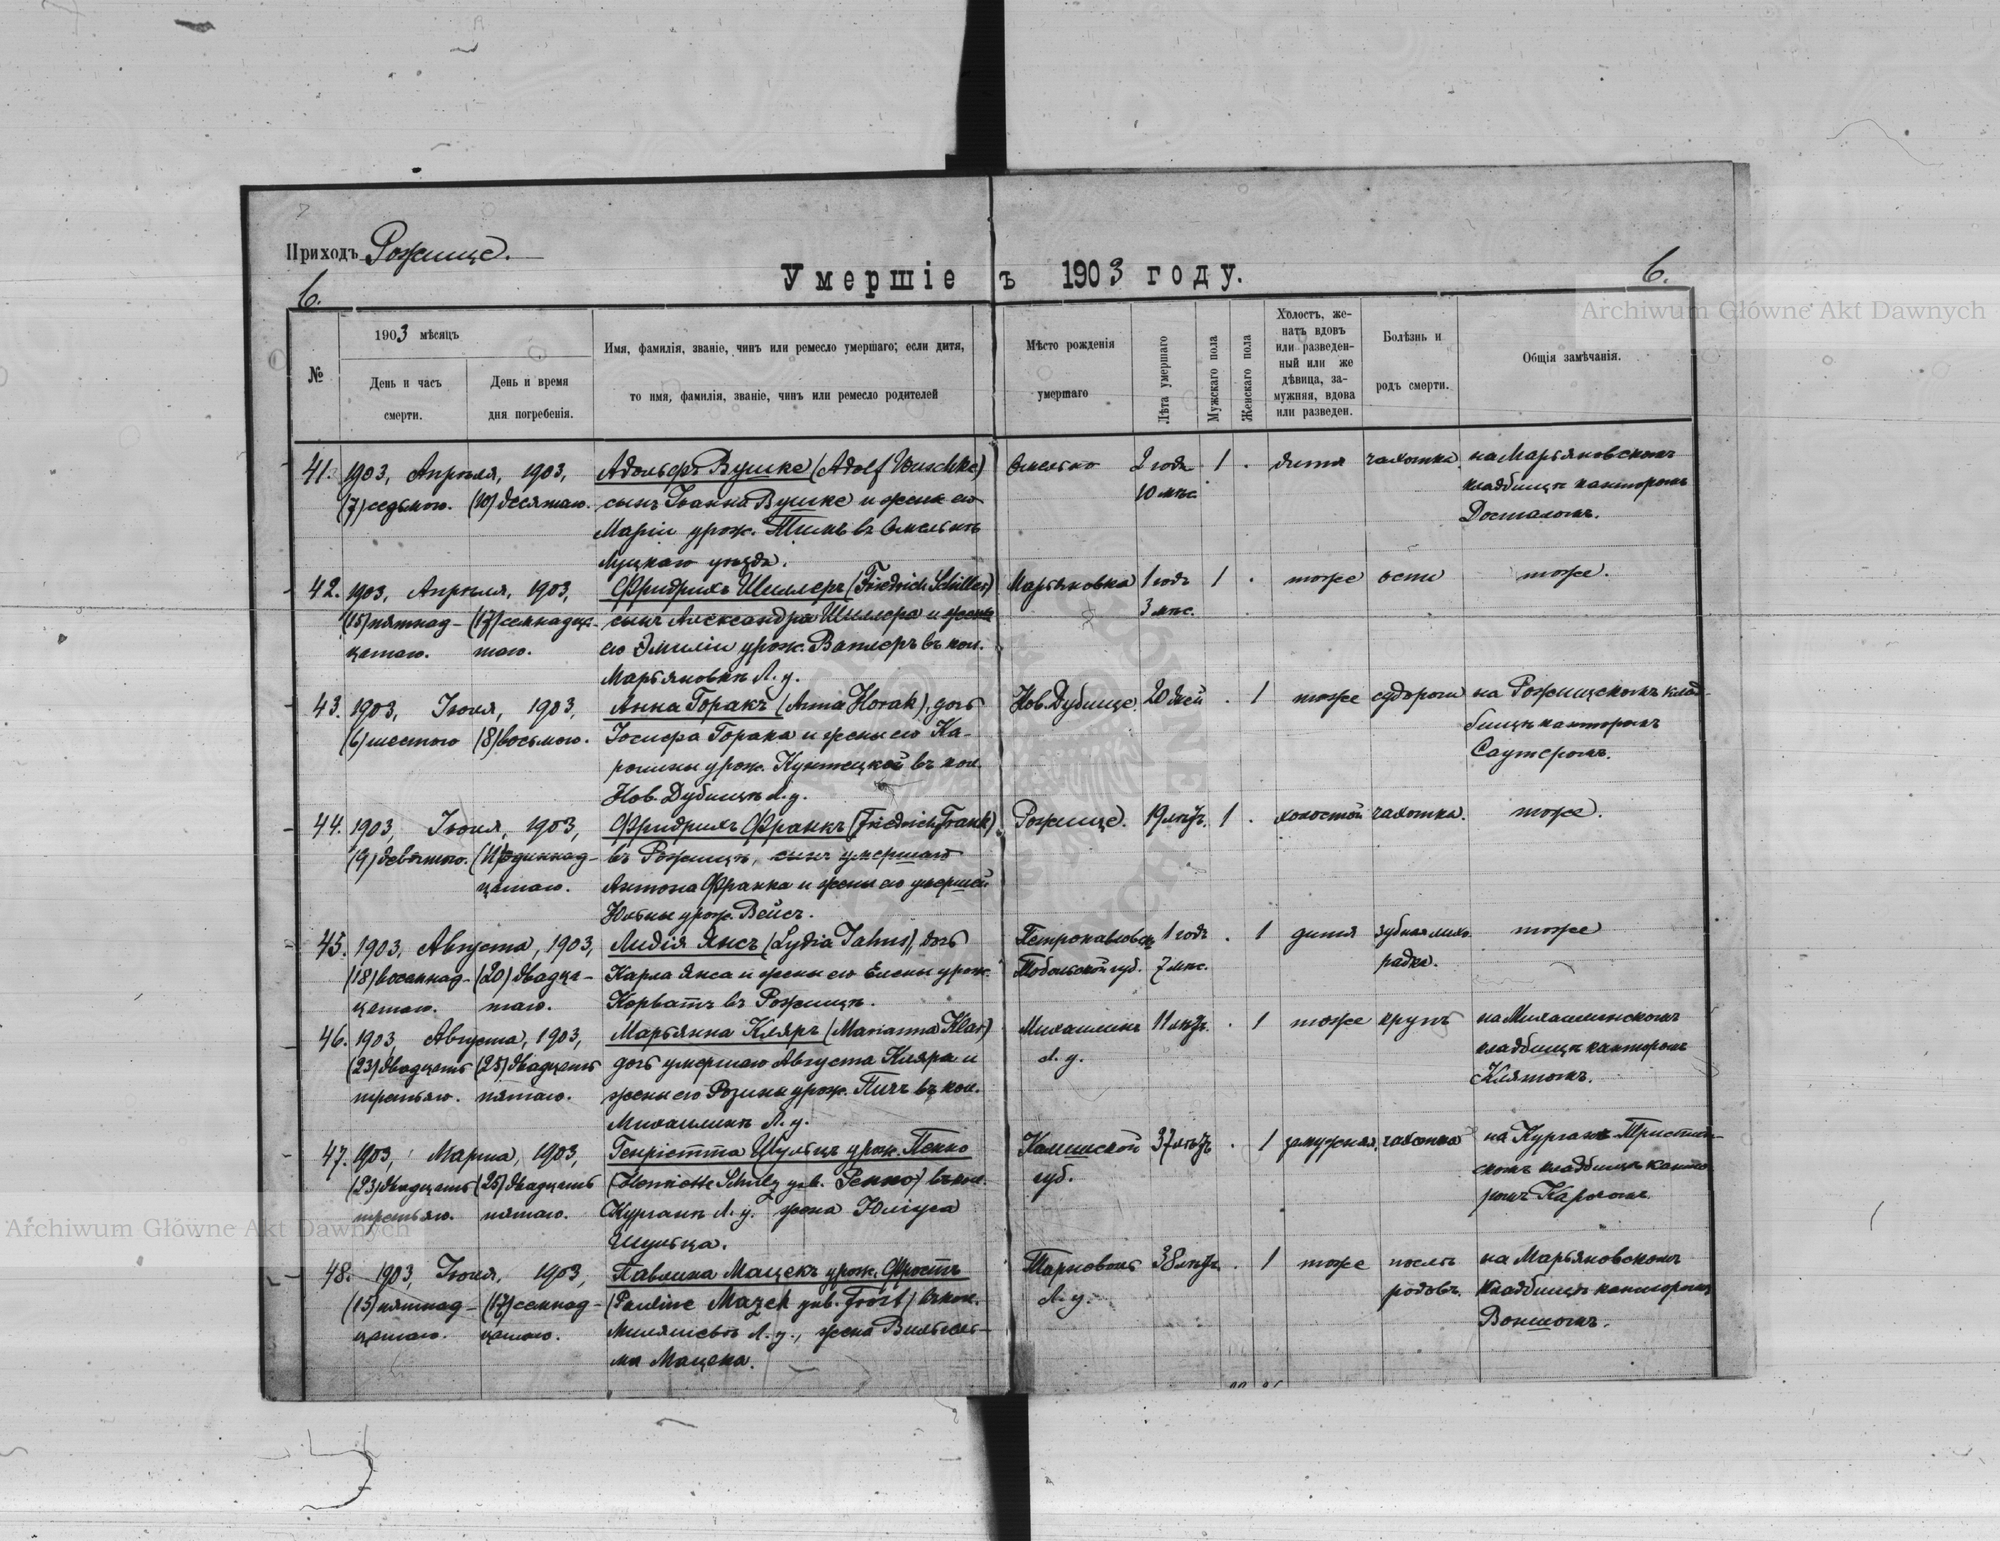 Приходъ Рожище.
Умершіе въ 1903 году.
6.
6.
№
1903 мѣсяцъ
День и часъ смерти.
День и время дня погребенія.
Имя, фамилія, званіе, чинъ или ремесло умершаго; если дитя,
то имя, фамилія, званіе, чинъ или ремесло родителей
Мѣсто рожденія
умершаго
Лѣта умершаго
Мужскаго пола
Женскаго пола
Холостъ, же-
натъ вдовъ
или разведен-
ный или же
дѣвица, за-
мужняя, вдова
или разведен.
Болѣзнь и
родъ смерти.
Общія замѣчанія.
41. 1903, Апрѣля, 1903, Адольфъ Вушке (Adolf Wuschke) Омельно 2 года 1 . дитя чахотка. на Марьяновскомъ
(7) седьмого. (10) десятаго. сынъ Іоанна Вушке и жены его 10 мѣс. кладбищѣ канторомъ
Маріи урож. Тимъ въ Омельнѣ Досталомъ.
Луцкаго уѣзда.
42. 1903, Апрѣля, 1903, Фридрихъ Шиллеръ (Friedrich Schiller) Марьяновка 1 годъ 1 . тоже оспы тоже.
(15) пятнад- (17) семнадца- сынъ Александра Шиллера и жены 3 мѣс.
цатаго. таго. его Эмиліи урож. въ кол.
Марьяновкѣ Л. у.
43. 1903, Іюня, 1903, Анна Горакъ (Anna Horak), дочь Нов. Дубище. 20 дней . 1 тоже судороги на Рожищскомъ клад-
(6) шестого (8) восьмого. Іосифа Горака и жены его Ка- бищѣ канторомъ
ролины урож. въ кол. Саутеромъ.
Нов. Дубищѣ Л. у.
44. 1903, Іюня, 1903, Фридрихъ Франкъ (Friedrich Frank) Рожище. 19 лѣтъ. 1 . холостой чахотка. тоже.
(9) девятаго. (11) одиннад- въ Рожищѣ, сынъ умершаго
цатаго. Антона Франка и жены его умершей
урож. Вейсъ.
45. 1903, Августа, 1903, Лидія Янсъ (Lydia Jahns), дочь 1 годъ . 1 дитя зубная лихо- тоже
(18) восемнад- (20) двадца- Карла Янса и жены его Елены урож. Тобольской губ. 7 мѣс. радка.
цатаго. таго. Корватъ въ Рожищѣ.
46. 1903, Августа, 1903, Марьянна Кляръ (Marianna Klar) Михаилинъ 11 лѣтъ. . 1 тоже крупъ на Михаилинскомъ
(23) двадцать (25) двадцать дочь умершаго Августа Кляра и Л. у. кладбищѣ канторомъ
третьяго. пятаго. жены его Розины урож. въ кол.
Михаилинѣ Л. у.
47. 1903, Марта, 1903, Генріетта Шульцъ урож. Пенно Калишской 37 лѣтъ . 1 замужная. чахотка
(23) двадцать (25) двадцать (Henriette Schulz geb. Penno) въ кол. губ. кладбищѣ канто-
третьяго. пятаго. Курганъ Л. у. жена Юліуса
Шульца.
48. 1903, Іюня, 1903, Павлина Мацекъ урож. Фростъ 38 лѣтъ . 1 тоже послѣ на Марьяновскомъ
(15) пятнад- (17) семнад- (Pauline Mazek geb. Frost) въ кол. Л. у. родовъ. кладбищѣ канторомъ
цатаго. цатаго. Л. у., жена Вильгель-
ма Мацека.
Archiwum Główne Akt Dawnych
Archiwum Główne Akt Dawnych